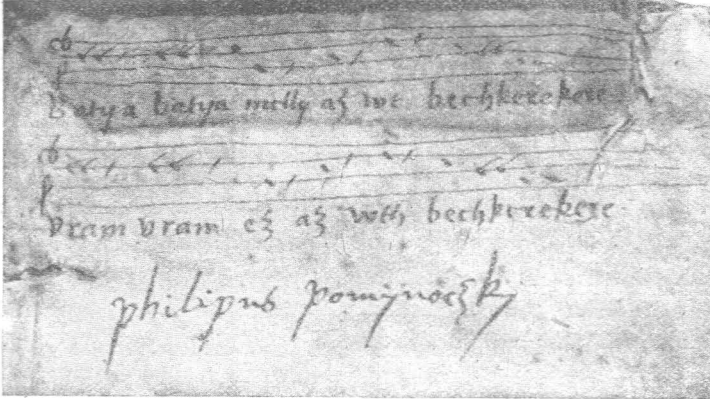 batya batya melly az wt bechkerekere
vram vram ez az wth bechkerekere
philipus pominoczky